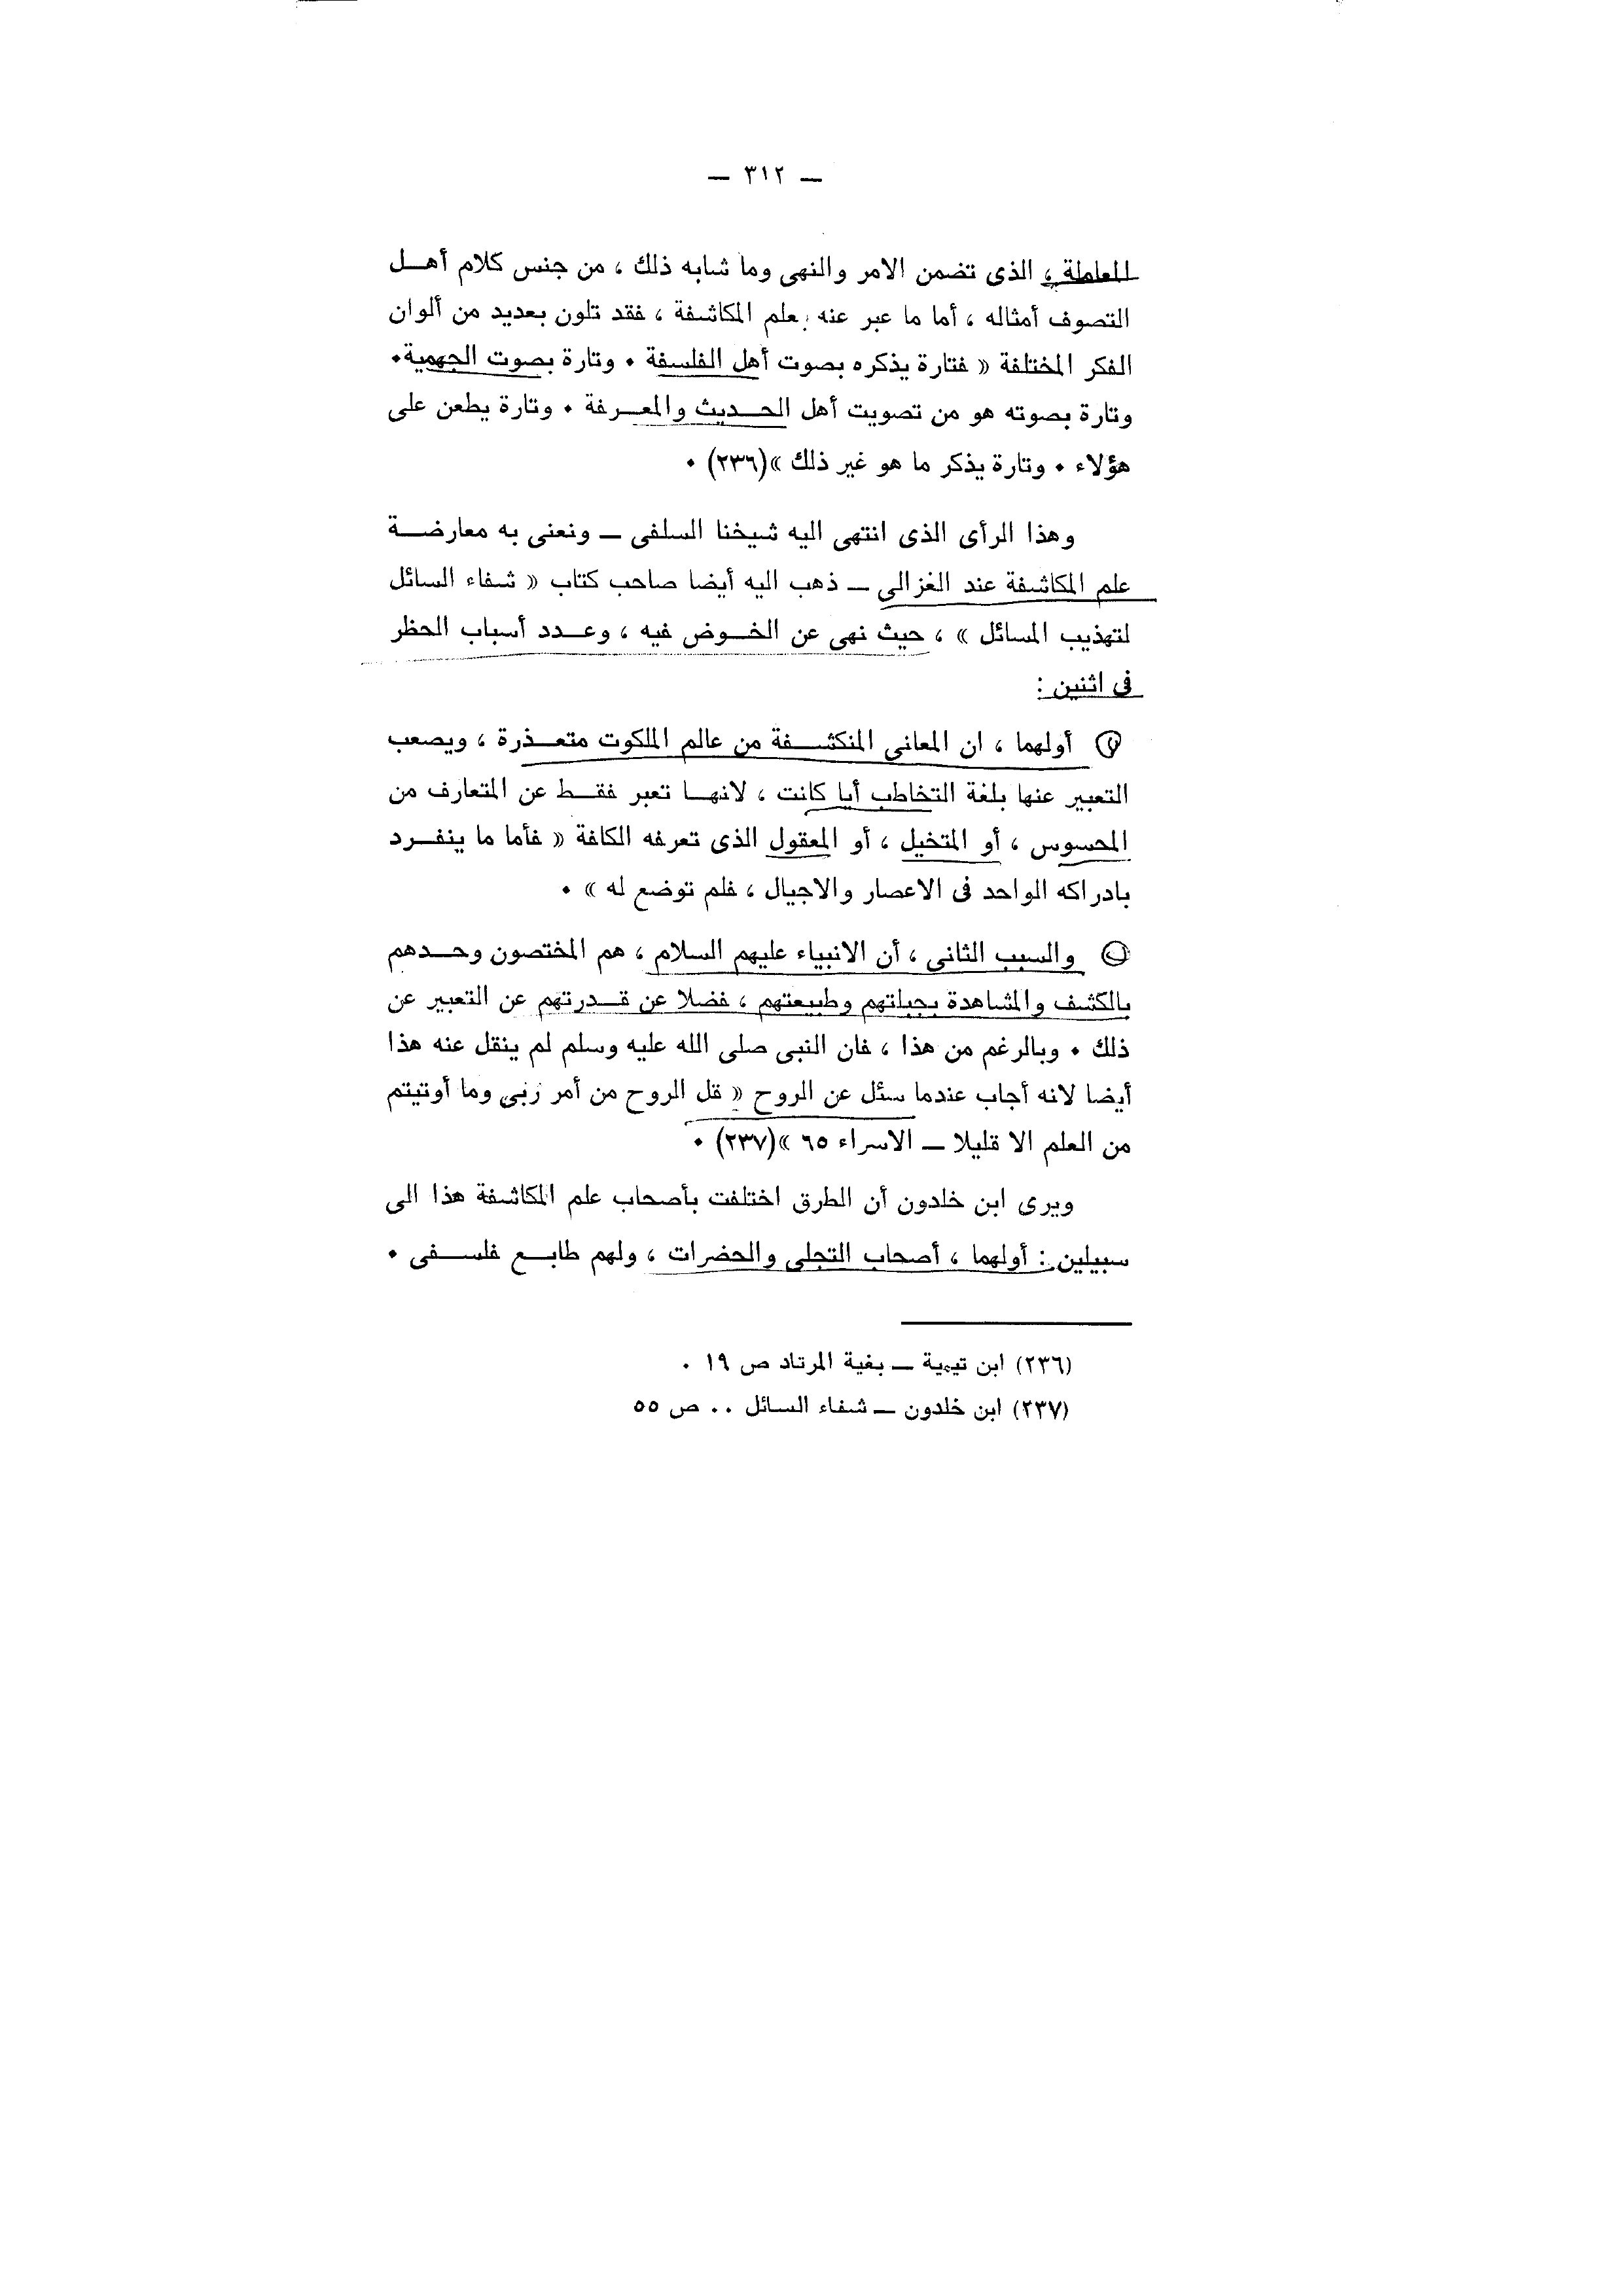 — ٣١٢ —
المعاملة ، الذى تضمن الامر والنهى وما شابه ذلك ، من جنس كلام أهــل
التصوف أمثاله ، أما ما عبر عنه بعلم المكاشفة ، فقد تلون بعديد من ألوان
الفكر المختلفة « فتارة يذكره بصوت أهل الفلسفة • وتارة بصوت الجهمية•
وتارة بصوته هو من تصويت أهل الحـديث والمعـرفة • وتارة يطعن على
هؤلاء • وتارة يذكر ما هو غير ذلك »(٢٣٦) •
وهذا الرأى الذى انتهى اليه شيخنا السلفى — ونعنى به معارضــة
علم المكاشفة عند الغزالى — ذهب اليه أيضا صاحب كتاب « شفاء السائل
لتهذيب المسائل » ، حيث نهى عن الخـوض فيه ، وعـدد أسباب الحظر
فى اثنين :
أولهما ، ان المعانى المنكشـفة من عالم الملكوت متعـذرة ، ويصعب
التعبير عنها بلغة التخاطب أيا كانت ، لانهـا تعبر فقـط عن المتعارف من
المحسوس ، أو المتخيل ، أو المعقول الذى تعرفه الكافة « فأما ما ينفـرد
بادراكه الواحد فى الاعصار والاجيال ، فلم توضع له » •
والسبب الثانى ، أن الانبياء عليهم السلام ، هم المختصون وحـدهم
بالكشف والمشاهدة بجبلتهم وطبيعتهم ، فضلا عن قـدرتهم عن التعبير عن
ذلك • وبالرغم من هذا ، فان النبى صلى الله عليه وسلم لم ينقل عنه هذا
أيضا لانه أجاب عندما سئل عن الروح « قل الروح من أمر ربى وما أوتيتم
من العلم الا قليلا — الاسراء ٦٥ »(٢٣٧) •
ويرى ابن خلدون أن الطرق اختلفت بأصحاب علم المكاشفة هذا الى
سبيلين : أولهما ، أصحاب التجلى والحضرات ، ولهم طابـع فلسـفى •
(٢٣٦) ابن تيمية — بغية المرتاد ص ١٩ .
(٢٣٧) ابن خلدون — شفاء السائل .. ص ٥٥